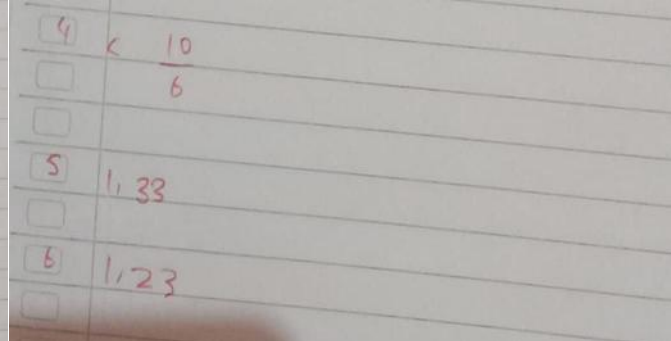 4 < 10/6
5 1,33
6 1,23